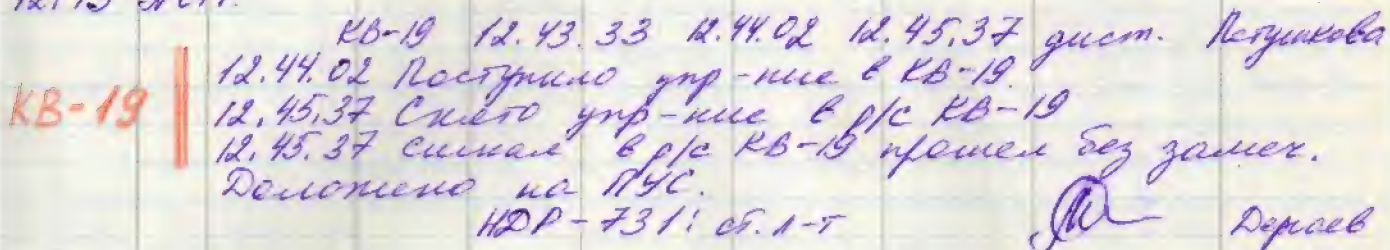 КВ-19 12.43.33 12.44.02 12.45.37 дист. Петушкова
12.44.02 Поступило упр-ние в КВ-19.
КВ-19
12.45.37 Снято упр-ние в р/с КВ-19
12.45.37 Сигнал в р/с КВ-19 прошел без замеч.
Доложено на ПУС.
НДР-731: ст. л-т